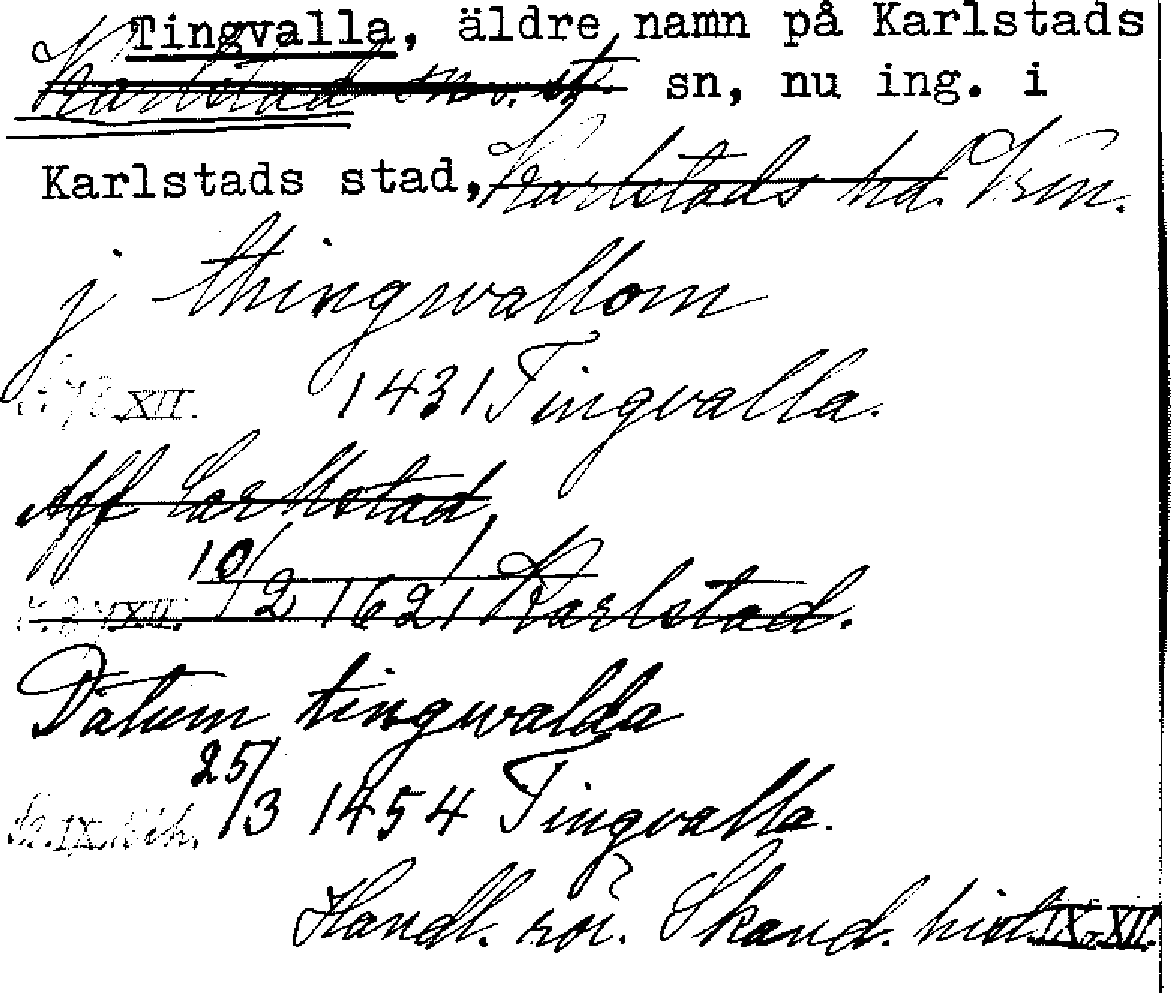 Tingvalla, äldre namn på Karlstads
Karlstad sn o. st. sn, nu ing. i
Karlstads stad, Karlstads hd. Vrm.
j thingwallom
XII. 1431 Tingvalla.
Aff Carlstad
XII. 10/2 1621 Karlstad.
Datum tingwalda
IX. 25/3 1454 Tingvalla.
Handl. rör. Skand. hist. IX-XII.